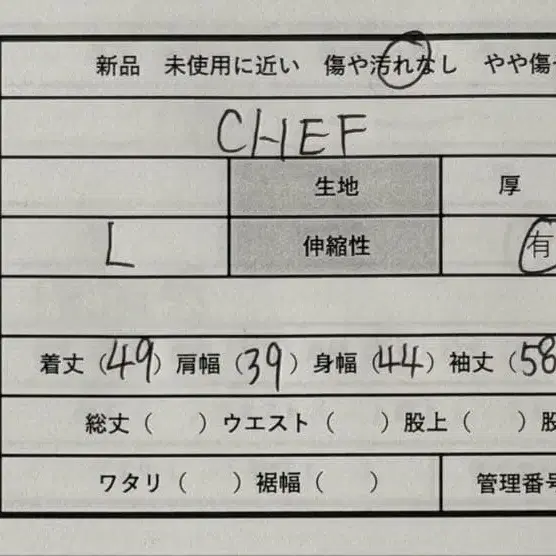 新品 未使用に近い 傷や汚れなし やや傷
CHEF
生地 厚
L 伸縮性 有
着丈(49) 肩幅(39) 身幅(44) 袖丈(58
総丈( )ウエスト( )股上( )股
ワタリ( )裾幅( ) 管理番号